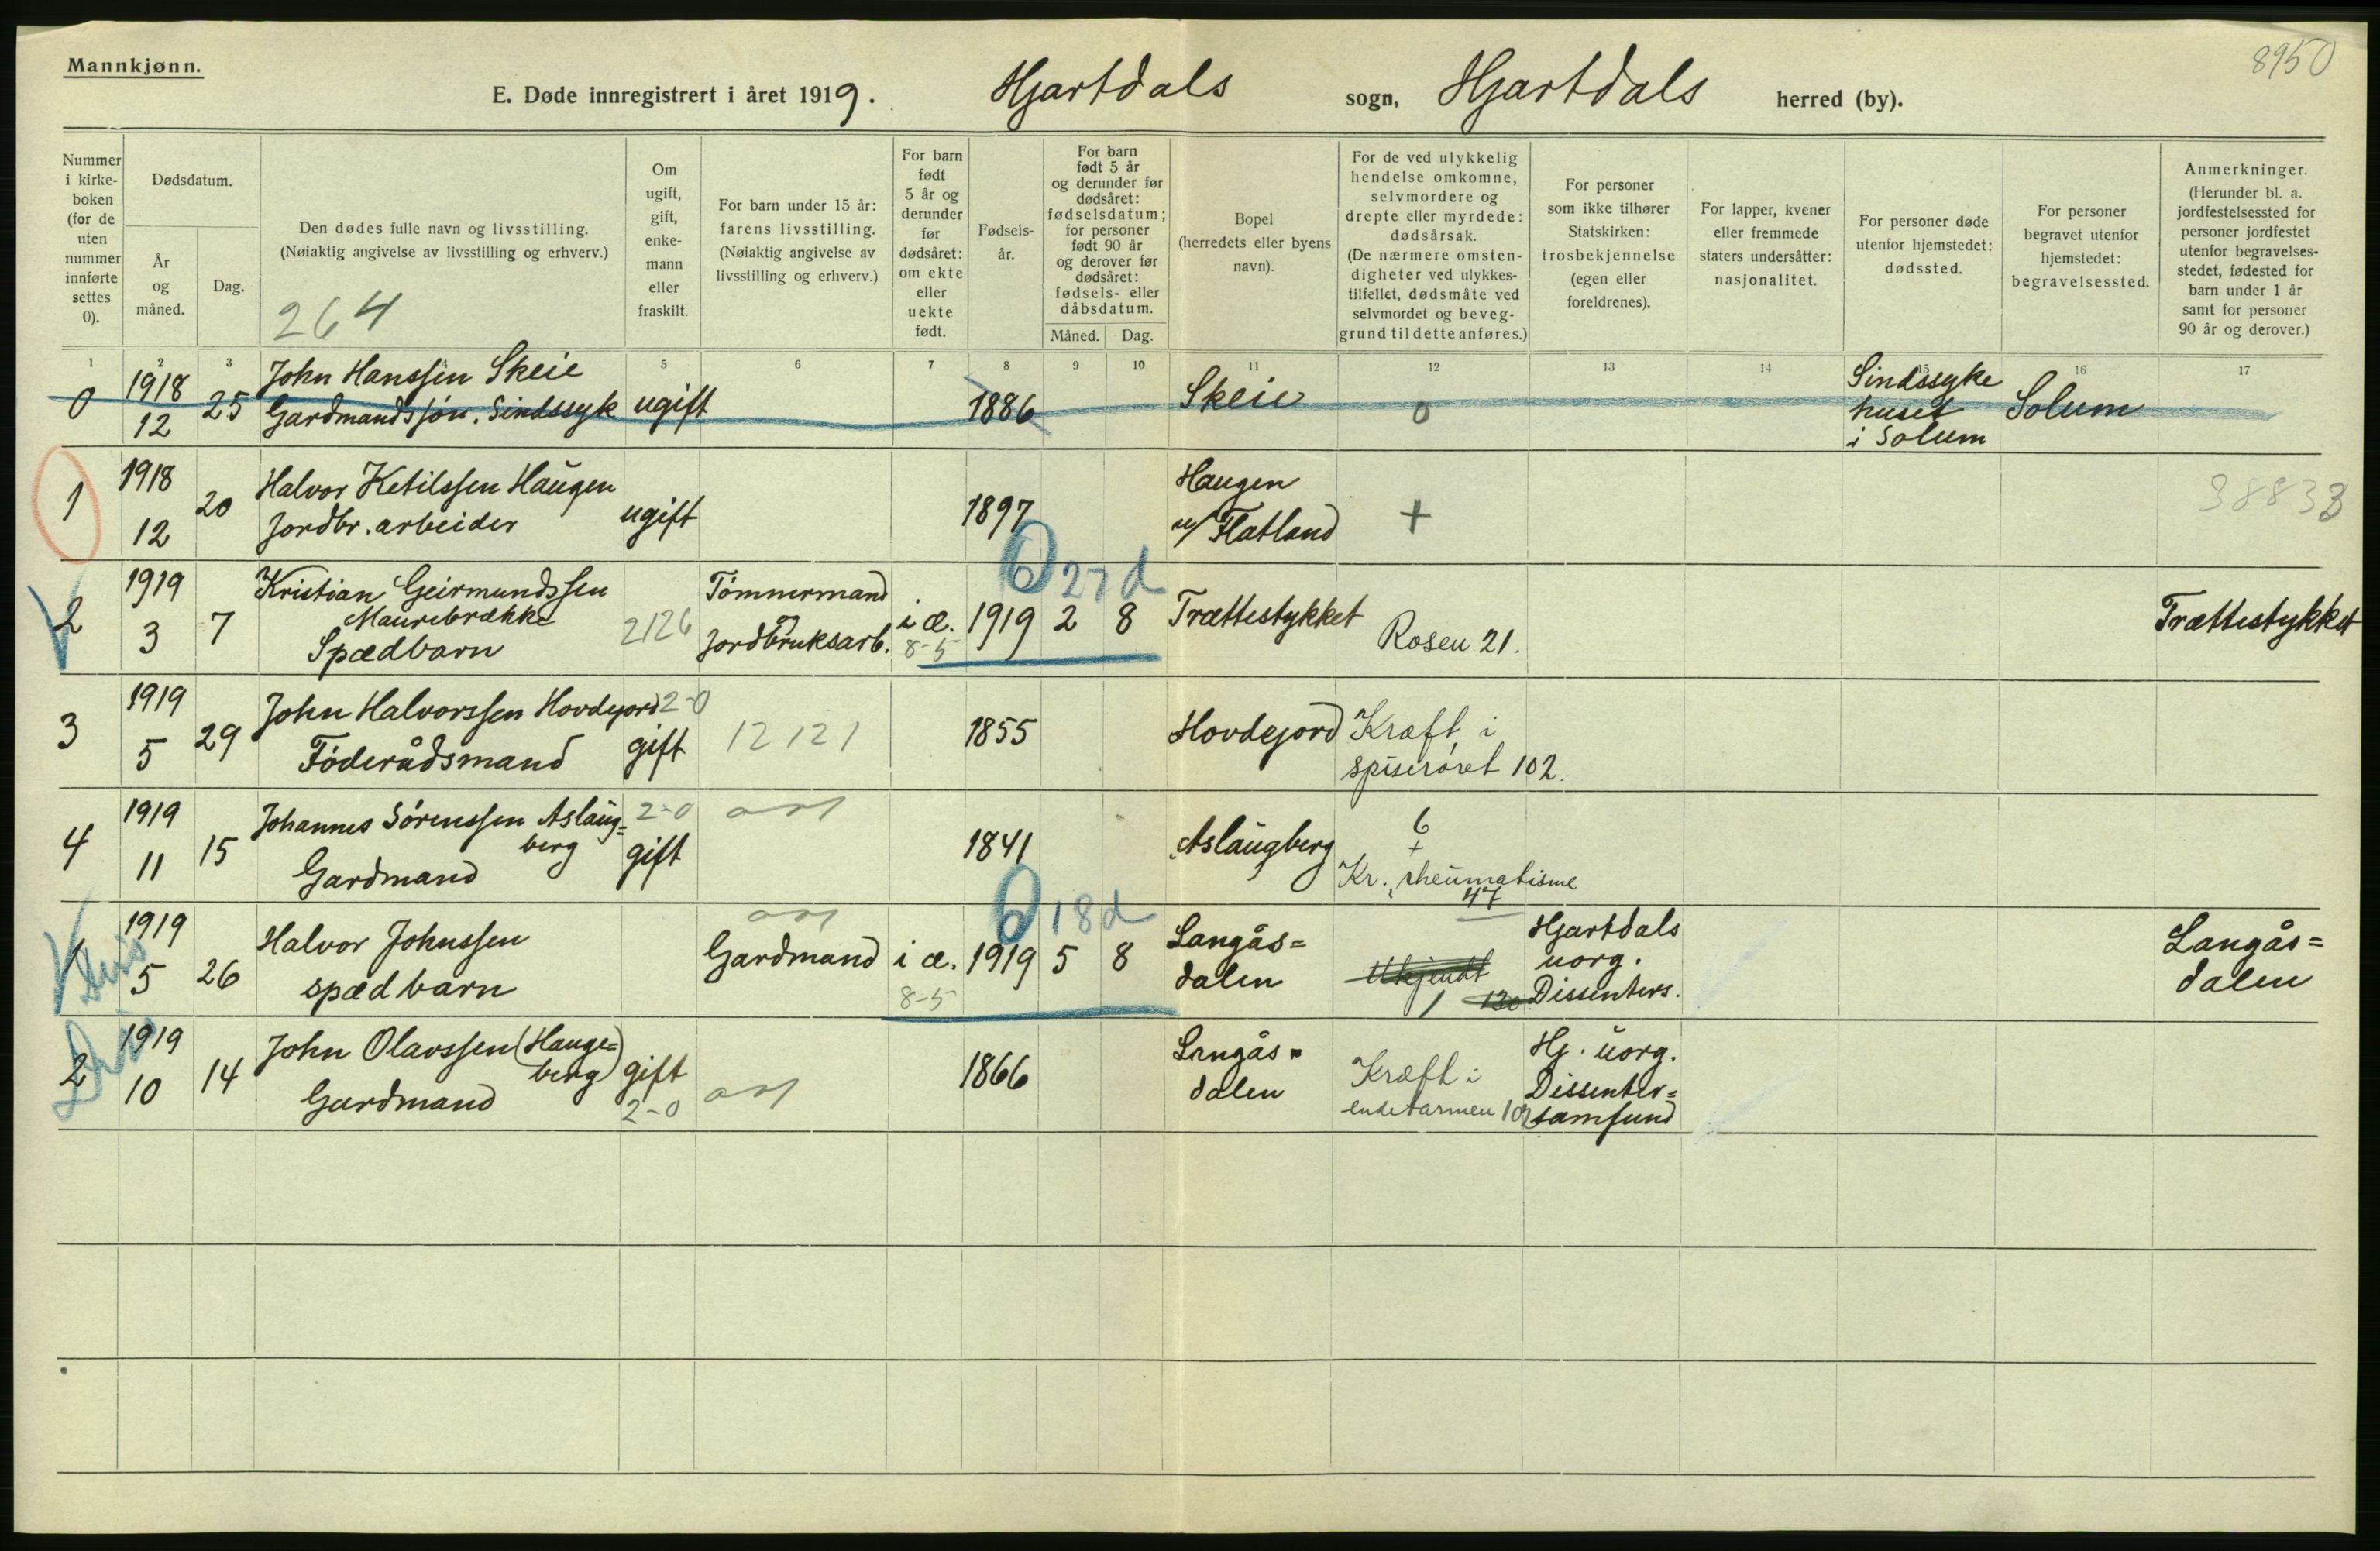 Mannkjønn.
8950
E. Døde innregistrert i året 1919. Hjartdals sogn, Hjartdals herred (by).
Nummer i kirke-boken (for de uten nummer innførte settes 0).
Dødsdatum.
År og måned.
Dag.
Den dødes fulle navn og livsstilling.
(Nøiaktig angivelse av livsstilling og erhverv.)
264
Om ugift, gift, enke-mann eller fraskilt.
For barn under 15 år: farens livsstilling. (Nøiaktig angivelse av livsstilling og erhverv.)
For barn født 5 år og derunder før dødsåret: om ekte eller uekte født.
Fødsels-år.
For barn født 5 år og derunder før dødsåret: fødselsdatum; for personer født 90 år og derover før dødsåret: fødsels- eller dåbsdatum.
Måned. Dag.
Bopel (herredets eller byens navn).
For de ved ulykkelig hendelse omkomne, selvmordere og drepte eller myrdede: dødsårsak. (De nærmere omsten-digheter ved ulykkes-tilfellet, dødsmåte ved selvmordet og beveg-grund til dette anføres.)
For personer som ikke tilhører Statskirken: trosbekjennelse (egen eller foreldrenes).
For lapper, kvener eller fremmede staters undersåtter: nasjonalitet.
For personer døde utenfor hjemstedet: dødssted.
For personer begravet utenfor hjemstedet: begravelsessted.
Anmerkninger. (Herunder bl. a. jordfestelsessted for personer jordfestet utenfor begravelses-stedet, fødested for barn under 1 år samt for personer 90 år og derover.)
1 2 3 5 6 7 8 9 10 11 12 13 14 15 16 17
0 1918 12 25 John Hanssen Skeie
Gardmandssøn. Sindssyk ugift 1886 Skeie 0 Sindssyke
huset
i Solum Solum
1 1918 12 20 Halvor Ketilssen Haugen
Jordbr. arbeider ugift 1897 Haugen
u/ Flatland + 38833
2 1919 3 7 Kristian Geirmundssen
Maurebrække
Spædbarn 2126 Tömmermand
og
Jordbruksarb. i æ. 8-5 1919 2 8 6 27 d Trættestykket Rosen 21. Trættestykket
3 1919 5 29 John Halvorssen Hovdejord 2-0
Föderådsmand gift 12121 1855 Hovdejord Kræft i
spiserøret 102.
4 1919 11 15 Johannes Sörenssen Aslaug=
berg
Gardmand 2-0 gift 1841 Aslaugberg 6
+
Kr. rheumatisme
47
1 Diss 1919 5 26 Halvor Johnssen
spædbarn Gardmand i æ. 8-5 1919 5 8 6 18 d Langås=
dalen Ukjendt
1 130 Hjartdals
uorg.
Dissenters. Langås=
dalen
2 Diss 1919 10 14 John Olavssen (Hauge=
berg)
Gardmand gift 2-0 1866 Langås=
dalen Kræft i
endetarmen 102 Hj. uorg.
Dissenter=
samfund